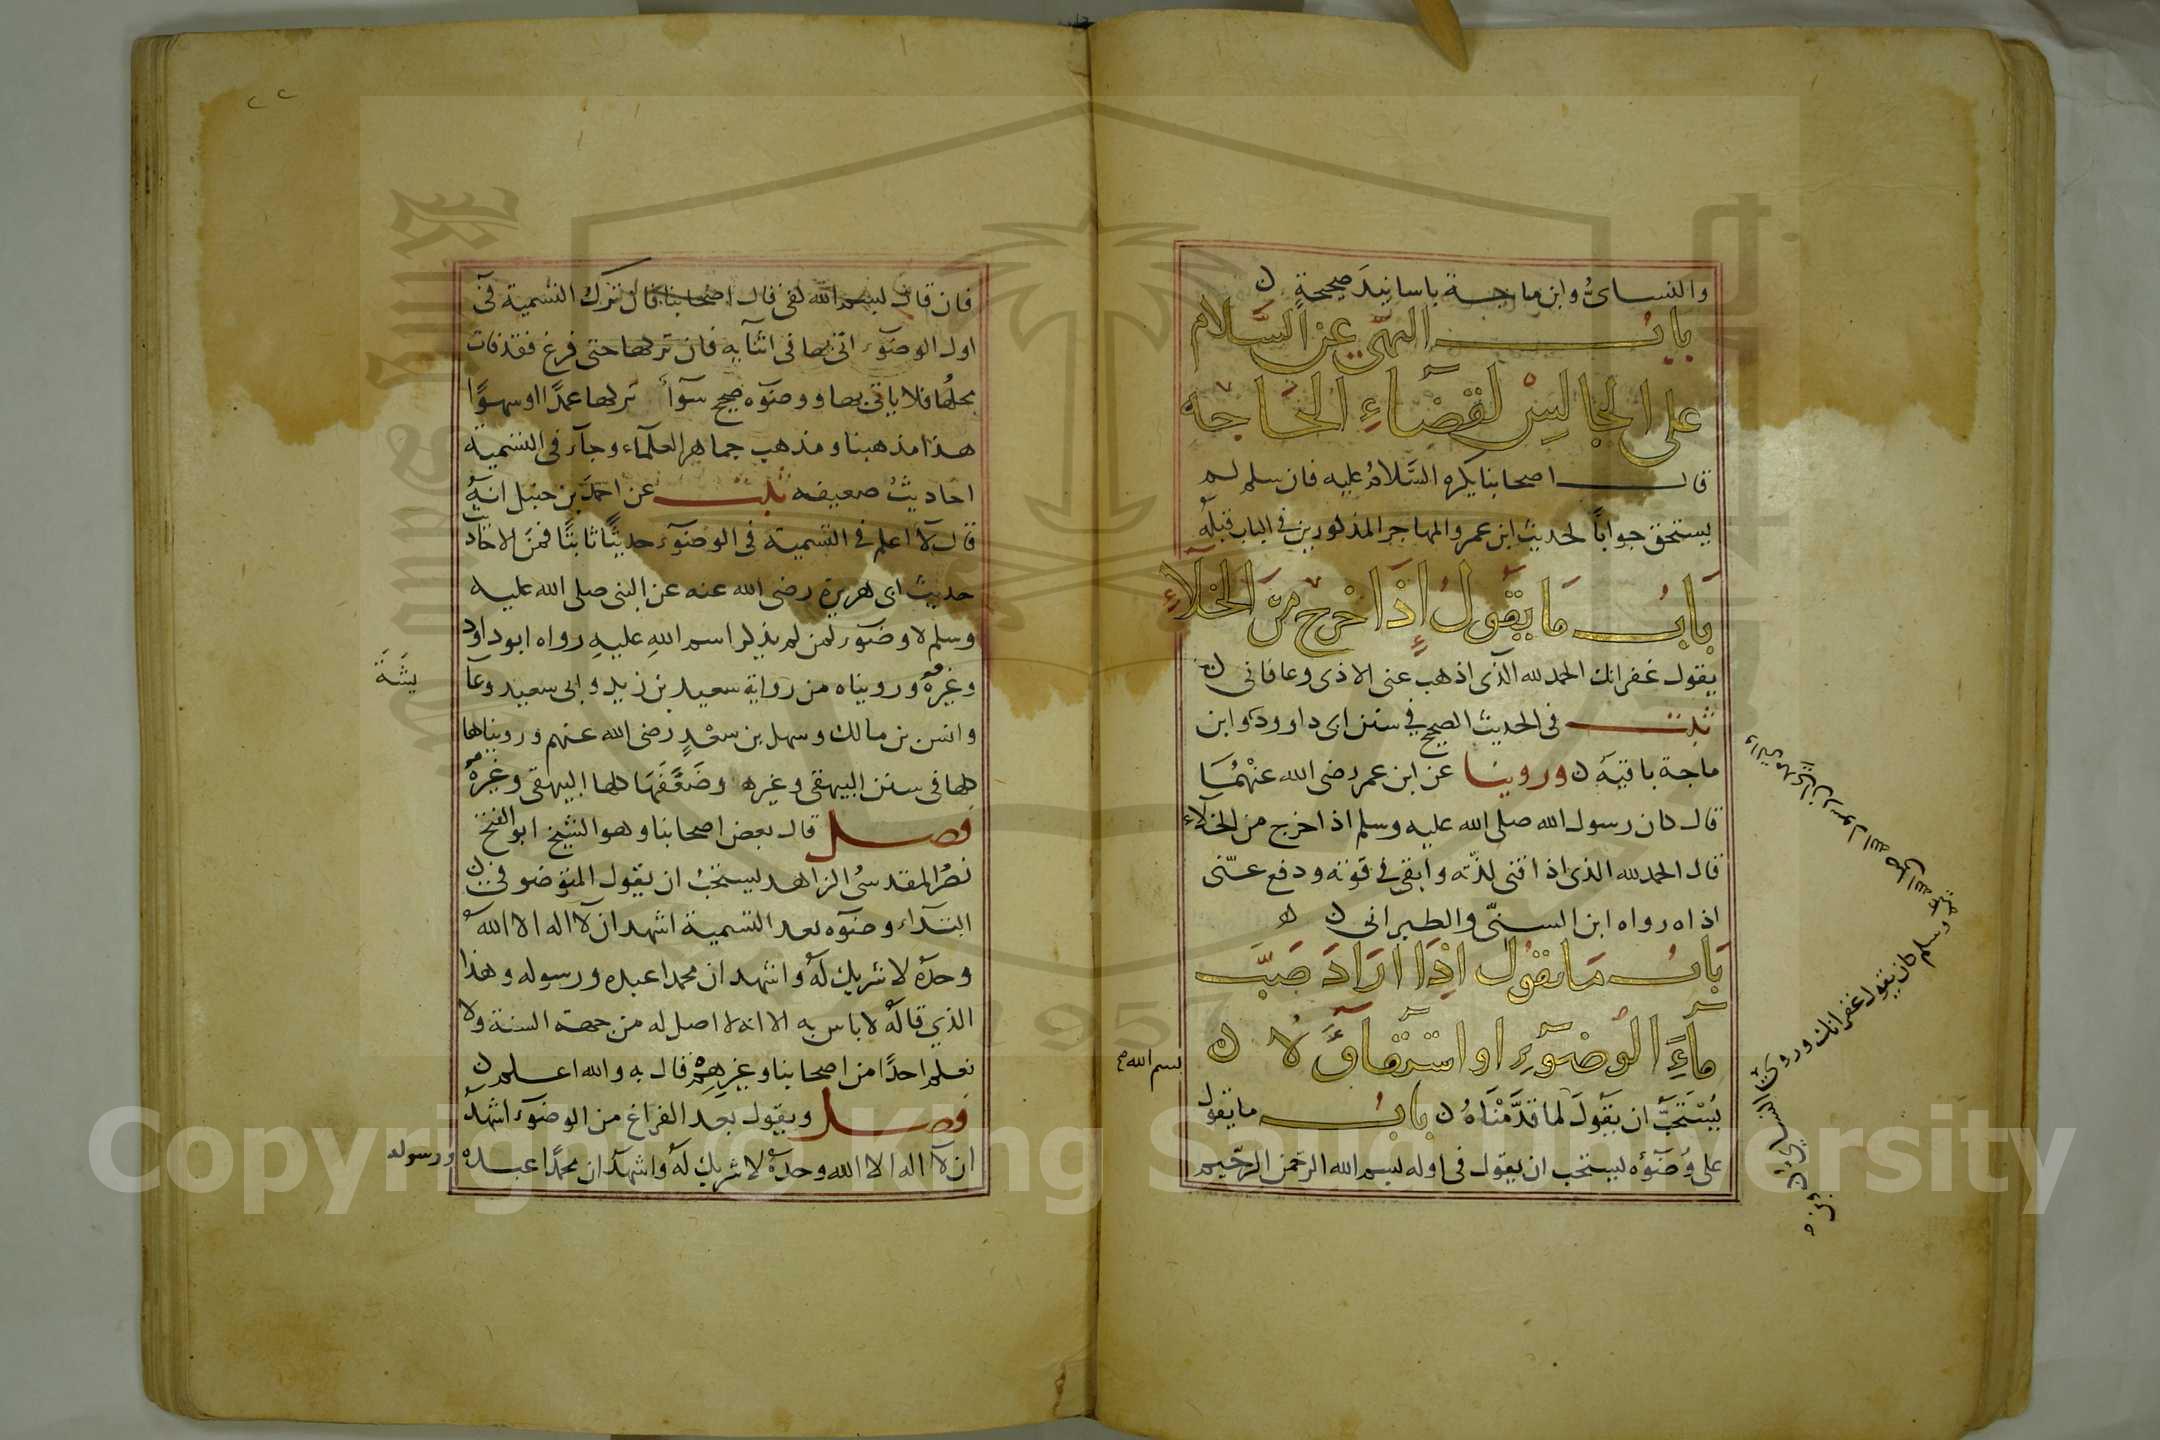 والنسائ وابن ماجة باسانيد صحيحة ن
باب النهي عن السلام
على الجالس لقضاء الحاجه
قال اصحابنا يكره السلام عليه فان سلم لم
يستحق جوابا لحديث ابن عمر والمهاجر المذكورين في الباب قبله
باب ما يقول إذا خرج من الخلاء
يقول غفرانك الحمد لله الذي اذهب عني الاذى وعافاني ن
ثبت في الحديث الصحيح في سنن ابي داوود وابن
ماجة باقيه ن وروينا عن ابن عمر رضي الله عنهما
قال كان رسول الله صلى الله عليه وسلم اذا خرج من الخلاء
قال الحمد لله الذي اذاقني لذته وابقى في قوته ودفع عني
اذاه رواه ابن السني والطبراني ن ه
باب ما يقول اذا اراد صب
ماء الوضوء او استقاءه ن
يستحب ان يقول لما قدمناه ن باب ما يقول
على وضوئه يستحب ان يقول في اوله بسم الله الرحمن الرحيم
رسول الله صلى الله عليه وسلم كان يقول غفرانك وروى النسائي
بسم الله صح
٢٢
فان قال بسم الله كفى قال اصحابنا فان ترك التسمية في
اول الوضوء اتى بها في اثنايه فان تركها حتى فرغ فقد فات
محلها فلا ياتي بها ووضوه صحيح سوآ تركها عمدا او سهوا
هذا مذهبنا ومذهب جماهر العلماء وجآء في التسمية
احاديث ضعيفه ثبت عن احمد بن حنبل انه
قال لا اعلم في التسمية في الوضوء حديثا ثابتا فمن الاحاديث
حديث ابي هريرة رضي الله عنه عن النبي صلى الله عليه
وسلم لا وضوء لمن لم يذكر اسم الله عليه رواه ابو داود
وغيره ورويناه من رواية سعيد بن زيد وابي سعيد وعا
يشة
وانس بن مالك وسهل بن سعد رضي الله عنهم ورويناها
كلها في سنن البيهقي وغيره وضعفها كلها البيهقي وغيره
فصل قال بعض اصحابنا وهو الشيخ ابو الفتح
نصر المقدسي الزاهد يستحب ان يقول المتوضو في ن
ابتداء وضوه بعد التسمية اشهد ان لا اله الا الله
وحده لا شريك له واشهد ان محمدا عبده ورسوله وهذا
الذي قاله لا باس به الا انه لا اصل له من جهة السنة ولا
نعلم احدا من اصحابنا وغيرهم قال به والله اعلم ن
فصل ويقول بعد الفراغ من الوضوء اشهد
ان لا اله الا الله وحده لا شريك له واشهد ان محمدا عبده
ورسوله
1957
Copyright © King Saud University